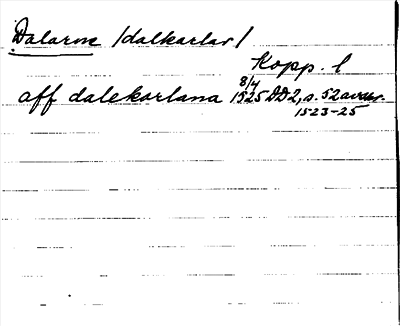 Dalarne /dalkarlar/
Kopp. l
aff dalekarlana 8/4 1525 DD2, s. 52 avskr.
1523-25